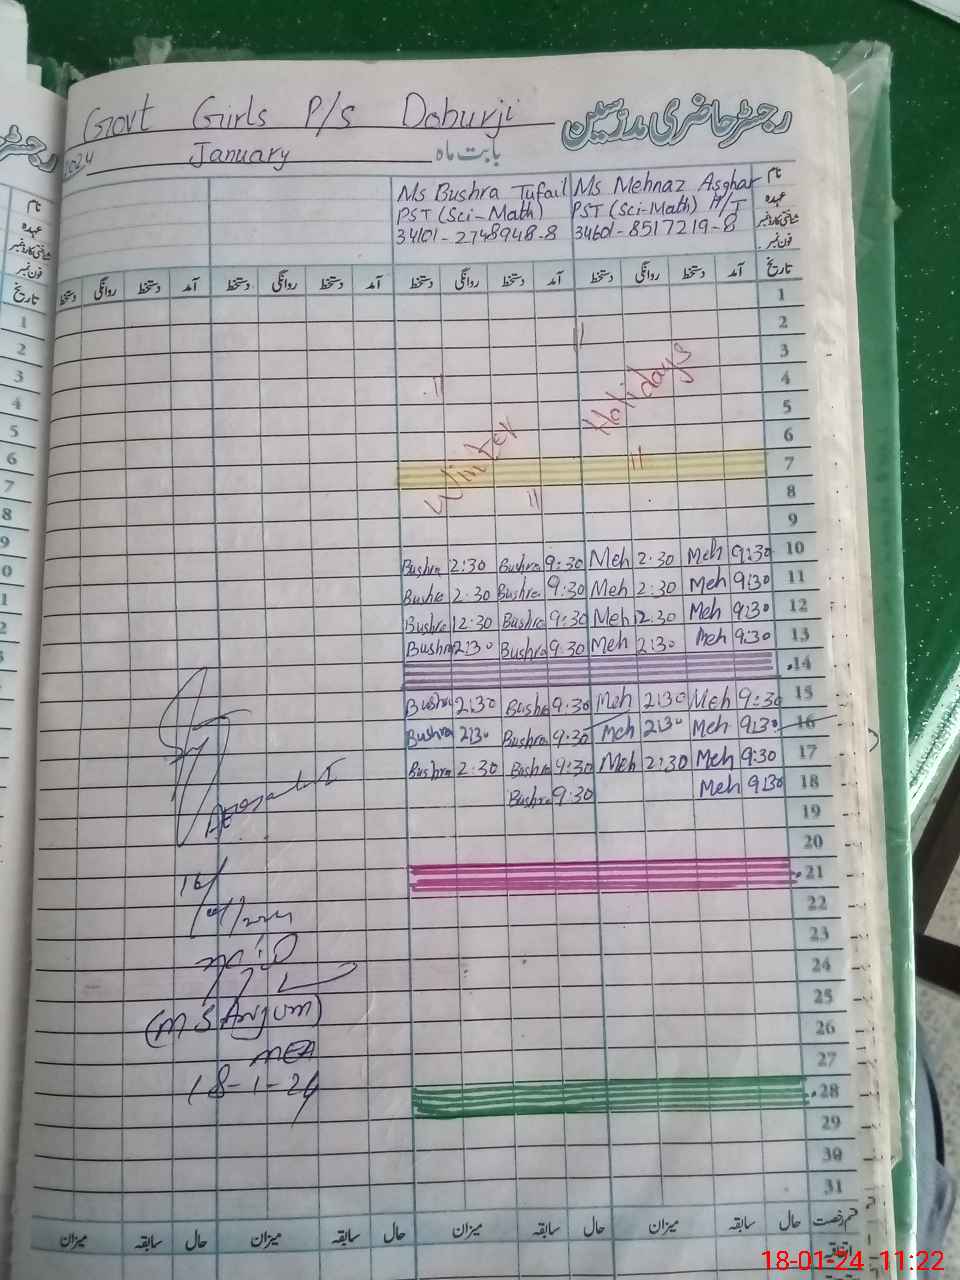 Govt Girls P/S Doburji
رجسٹر حاضری مدرسین
2024 January بابت ماہ
نام Ms Mehnaz Asghar Ms Bushra Tufail
عہدہ PST (Sci-Math) H/T PST (Sci-Math)
شناختی کارڈ نمبر 34601-8517219-8 34101-2748948-8
فون نمبر
تاریخ آمد دستخط روانگی دستخط آمد دستخط روانگی دستخط آمد دستخط روانگی دستخط آمد دستخط روانگی دستخط
1
2
3
4
5
6
7
8
9
Winter Holidays
Bushra 2:30 Bushra 9:30 Meh 2:30 Meh 9:30 10
Bushra 2:30 Bushra 9:30 Meh 2:30 Meh 9:30 11
Bushra 12:30 Bushra 9:30 Meh 12:30 Meh 9:30 12
Bushra 2:30 Bushra 9:30 Meh 2:30 Meh 9:30 13
14
Bushra 2:30 Bushra 9:30 Meh 2:30 Meh 9:30 15
Bushra 2:30 Bushra 9:30 Meh 2:30 Meh 9:30 16
Bushra 2:30 Bushra 9:30 Meh 2:30 Meh 9:30 17
Bushra 9:30 Meh 9:30 18
19
20
21
22
23
24
25
26
27
28
29
30
31
(M S Anjum)
MEA
18-1-24
قسم رخصت حال سابقہ میزان حال سابقہ میزان حال سابقہ میزان حال سابقہ میزان
اتفاقیہ
نام
عہدہ
شناختی کارڈ نمبر
فون نمبر
تاریخ
1
2
3
4
5
6
7
8
9
18-01-24 11:22